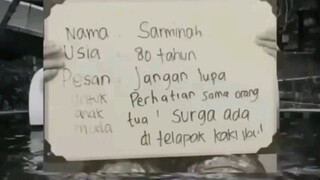 Nama : Sarminah
Usia : 80 tahun
Pesan : Jangan lupa
untuk Perhatian sama orang
anak tua ! Surga ada
muda di telapak kaki Ibu!